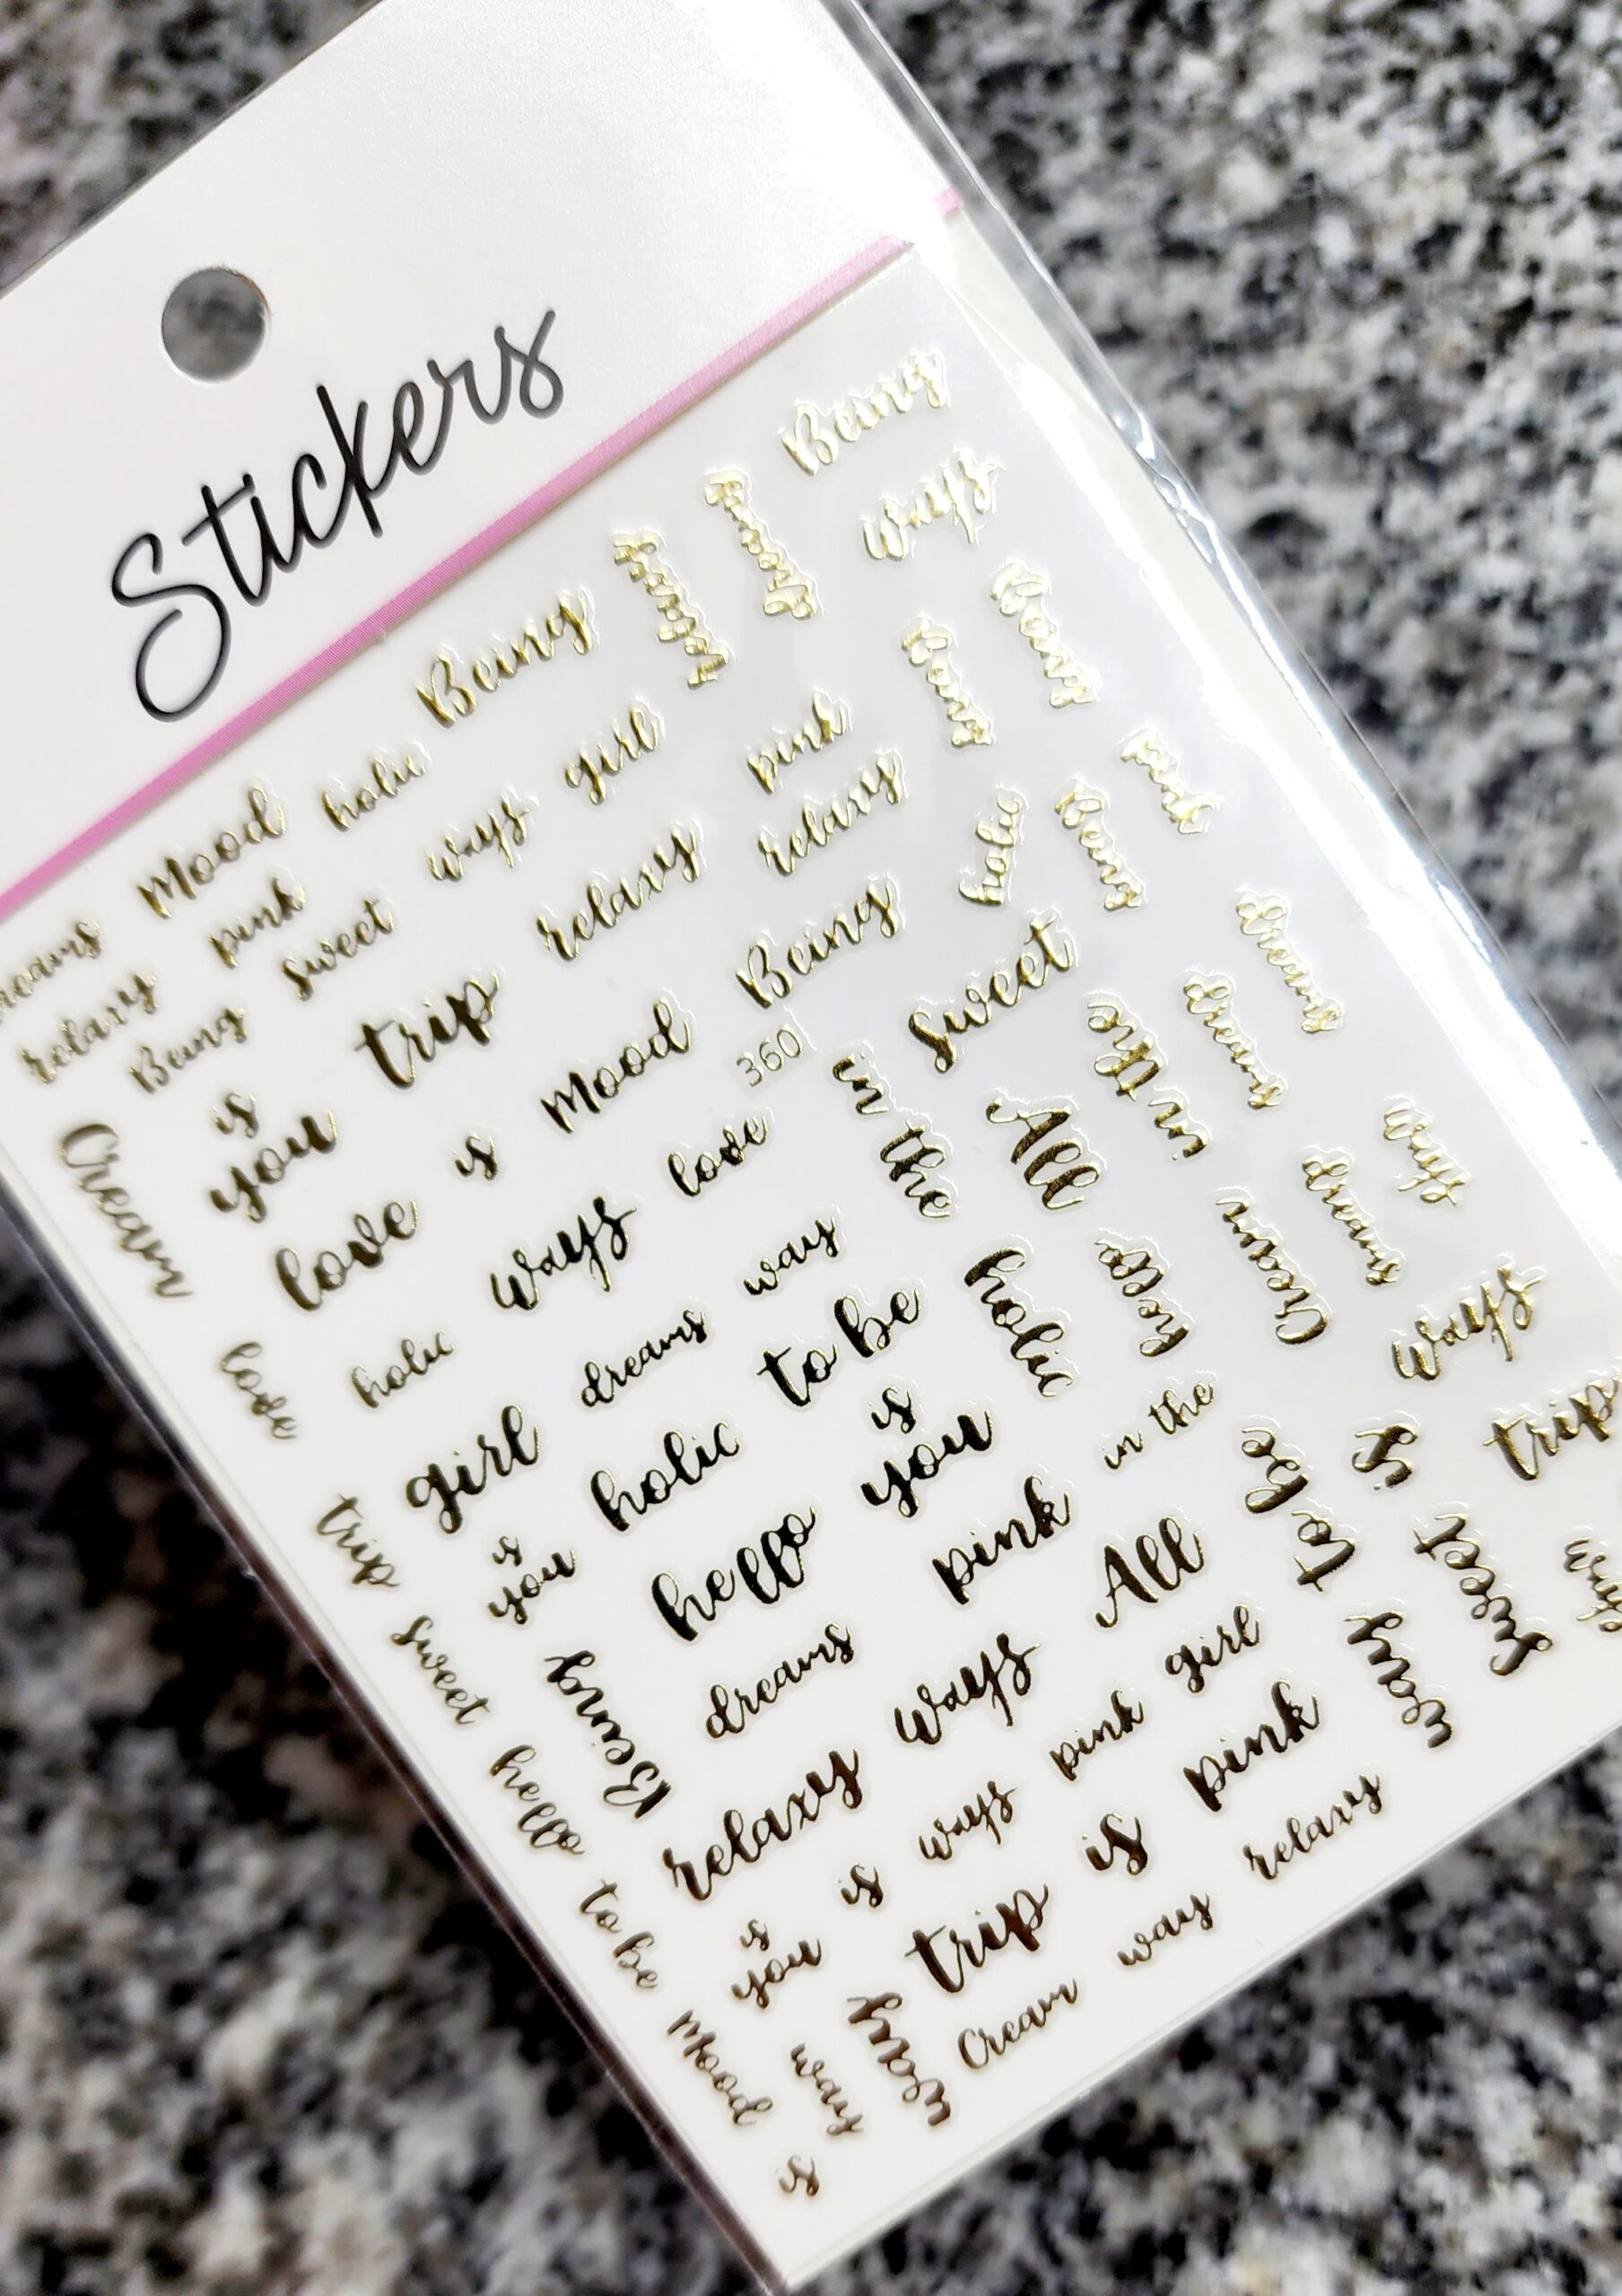 Stickers
Being
ways
Being
holic
Mood
girl
ways
pink
pink
sweet
relaxy
relaxy
relaxy
Being
trip
holic
Being
Mood
sweet
is
you
is
love
360
love
in the
All
in the
dreams
dreams
ways
Cream
ways
way
dreams
holic
love
to be
holic
hello
Cream
dreams
ways
girl
holic
is
you
in the
trip
is
you
hello
pink
to be
is
trip
sweet
Being
dreams
All
sweet
way
ways
girl
hello
relaxy
pink
pink
ways
is
to be
is
is
you
trip
relaxy
way
Mood
way
way
Cream
is